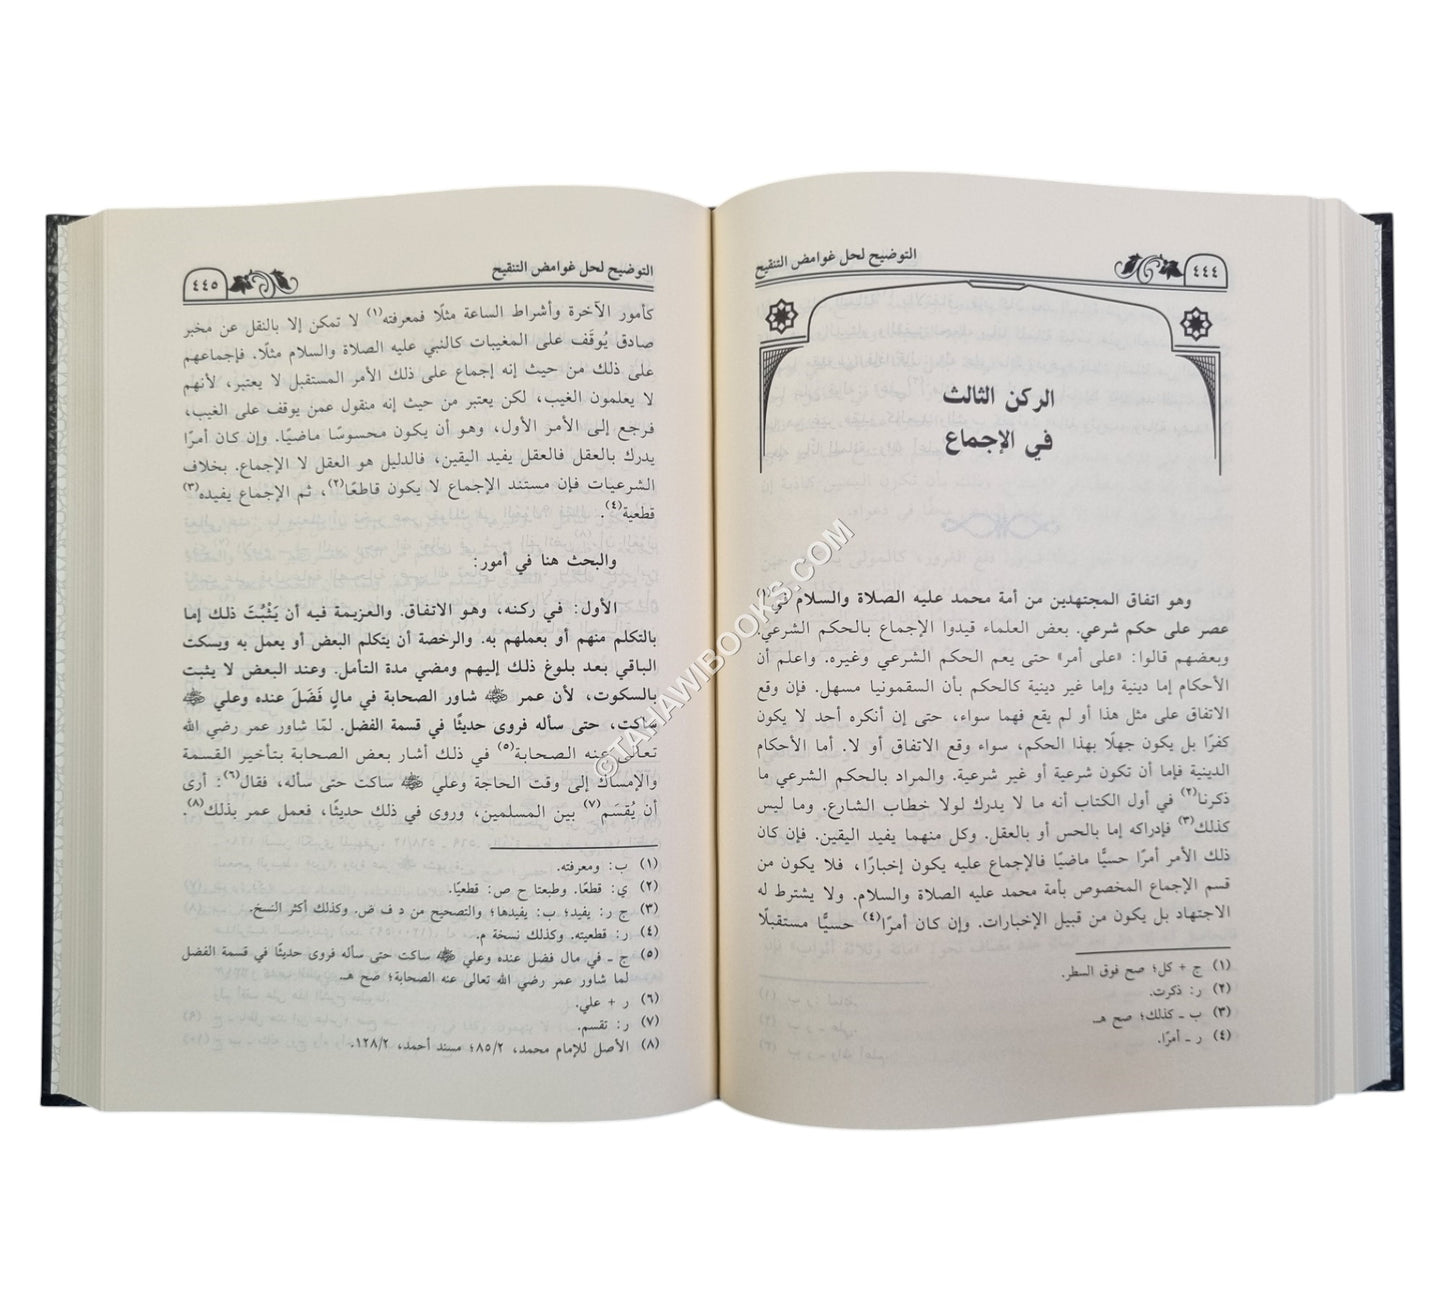 ٤٤٤
التوضيح لحل غوامض التنقيح
الركن الثالث
في الإجماع
وهو اتفاق المجتهدين من أمة محمد عليه الصلاة والسلام في(١)
عصر على حكم شرعي. بعض العلماء قيدوا الإجماع بالحكم الشرعي.
وبعضهم قالوا: «على أمر» حتى يعم الحكم الشرعي وغيره. واعلم أن
الأحكام إما دينية وإما غير دينية كالحكم بأن السقمونيا مسهل. فإن وقع
الاتفاق على مثل هذا أو لم يقع فهما سواء، حتى إن أنكره أحد لا يكون
كفرًا بل يكون جهلًا بهذا الحكم، سواء وقع الاتفاق أو لا. أما الأحكام
الدينية فإما أن تكون شرعية أو غير شرعية. والمراد بالحكم الشرعي ما
ذكرنا(٢) في أول الكتاب أنه ما لا يدرك لولا خطاب الشارع. وما ليس
كذلك(٣) فإدراكه إما بالحس أو بالعقل. وكل منهما يفيد اليقين. فإن كان
ذلك الأمر أمرًا حسيًّا ماضيًا فالإجماع عليه يكون إخبارًا، فلا يكون من
قسم الإجماع المخصوص بأمة محمد عليه الصلاة والسلام. ولا يشترط له
الاجتهاد بل يكون من قبيل الإخبارات. وإن كان أمرًا(٤) حسيًّا مستقبلًا
(١) ج + كل؛ صح فوق السطر.
(٢) ر: ذكرت.
(٣) ب ـ كذلك؛ صح هـ.
(٤) ر ـ أمرًا.
التوضيح لحل غوامض التنقيح
٤٤٥
كأمور الآخرة وأشراط الساعة مثلًا فمعرفته(١) لا تمكن إلا بالنقل عن مخبر
صادق يُوقَف على المغيبات كالنبي عليه الصلاة والسلام مثلًا. فإجماعهم
على ذلك من حيث إنه إجماع على ذلك الأمر المستقبل لا يعتبر، لأنهم
لا يعلمون الغيب، لكن يعتبر من حيث إنه منقول عمن يوقف على الغيب،
فرجع إلى الأمر الأول، وهو أن يكون محسوسًا ماضيًا. وإن كان أمرًا
يدرك بالعقل فالعقل يفيد اليقين، فالدليل هو العقل لا الإجماع. بخلاف
الشرعيات فإن مستند الإجماع لا يكون قاطعًا(٢)، ثم الإجماع يفيده(٣)
قطعية(٤).
والبحث هنا في أمور:
الأول: في ركنه، وهو الاتفاق. والعزيمة فيه أن يَثْبُتَ ذلك إما
بالتكلم منهم أو بعملهم به. والرخصة أن يتكلم البعض أو يعمل به ويسكت
الباقي بعد بلوغ ذلك إليهم ومضي مدة التأمل. وعند البعض لا يثبت
بالسكوت، لأن عمر ﵁ شاور الصحابة في مالٍ فَضَلَ عنده وعلي ﵁
ساكت، حتى سأله فروى حديثًا في قسمة الفضل. لمّا شاور عمر رضي الله
تعالى عنه الصحابة(٥) في ذلك أشار بعض الصحابة بتأخير القسمة
والإمساك إلى وقت الحاجة وعلي ﵁ ساكت حتى سأله، فقال(٦): أرى
أن يُقسَم(٧) بين المسلمين، وروى في ذلك حديثًا، فعمل عمر بذلك(٨).
(١) ب: ومعرفته.
(٢) ي: قطعًا. وطبعتا ح ص: قطعيًا.
(٣) ج ر: يفيد؛ ب: يفيدها؛ والتصحيح من د ف ض. وكذلك أكثر النسخ.
(٤) ر: قطعيته. وكذلك نسخة م.
(٥) ج ـ في مال فضل عنده وعلي ﵁ ساكت حتى سأله فروى حديثًا في قسمة الفضل
لما شاور عمر رضي الله تعالى عنه الصحابة؛ صح هـ.
(٦) ر + علي.
(٧) ر: تقسم.
(٨) الأصل للإمام محمد، ٨٥/٢؛ مسند أحمد، ١٢٨/٢.
©TAHAWIBOOKS.COM